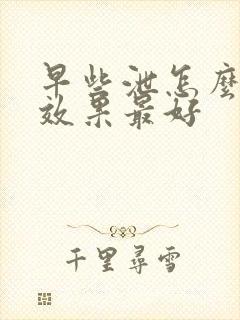 早些泄怎麼
效果最好
千里尋雪